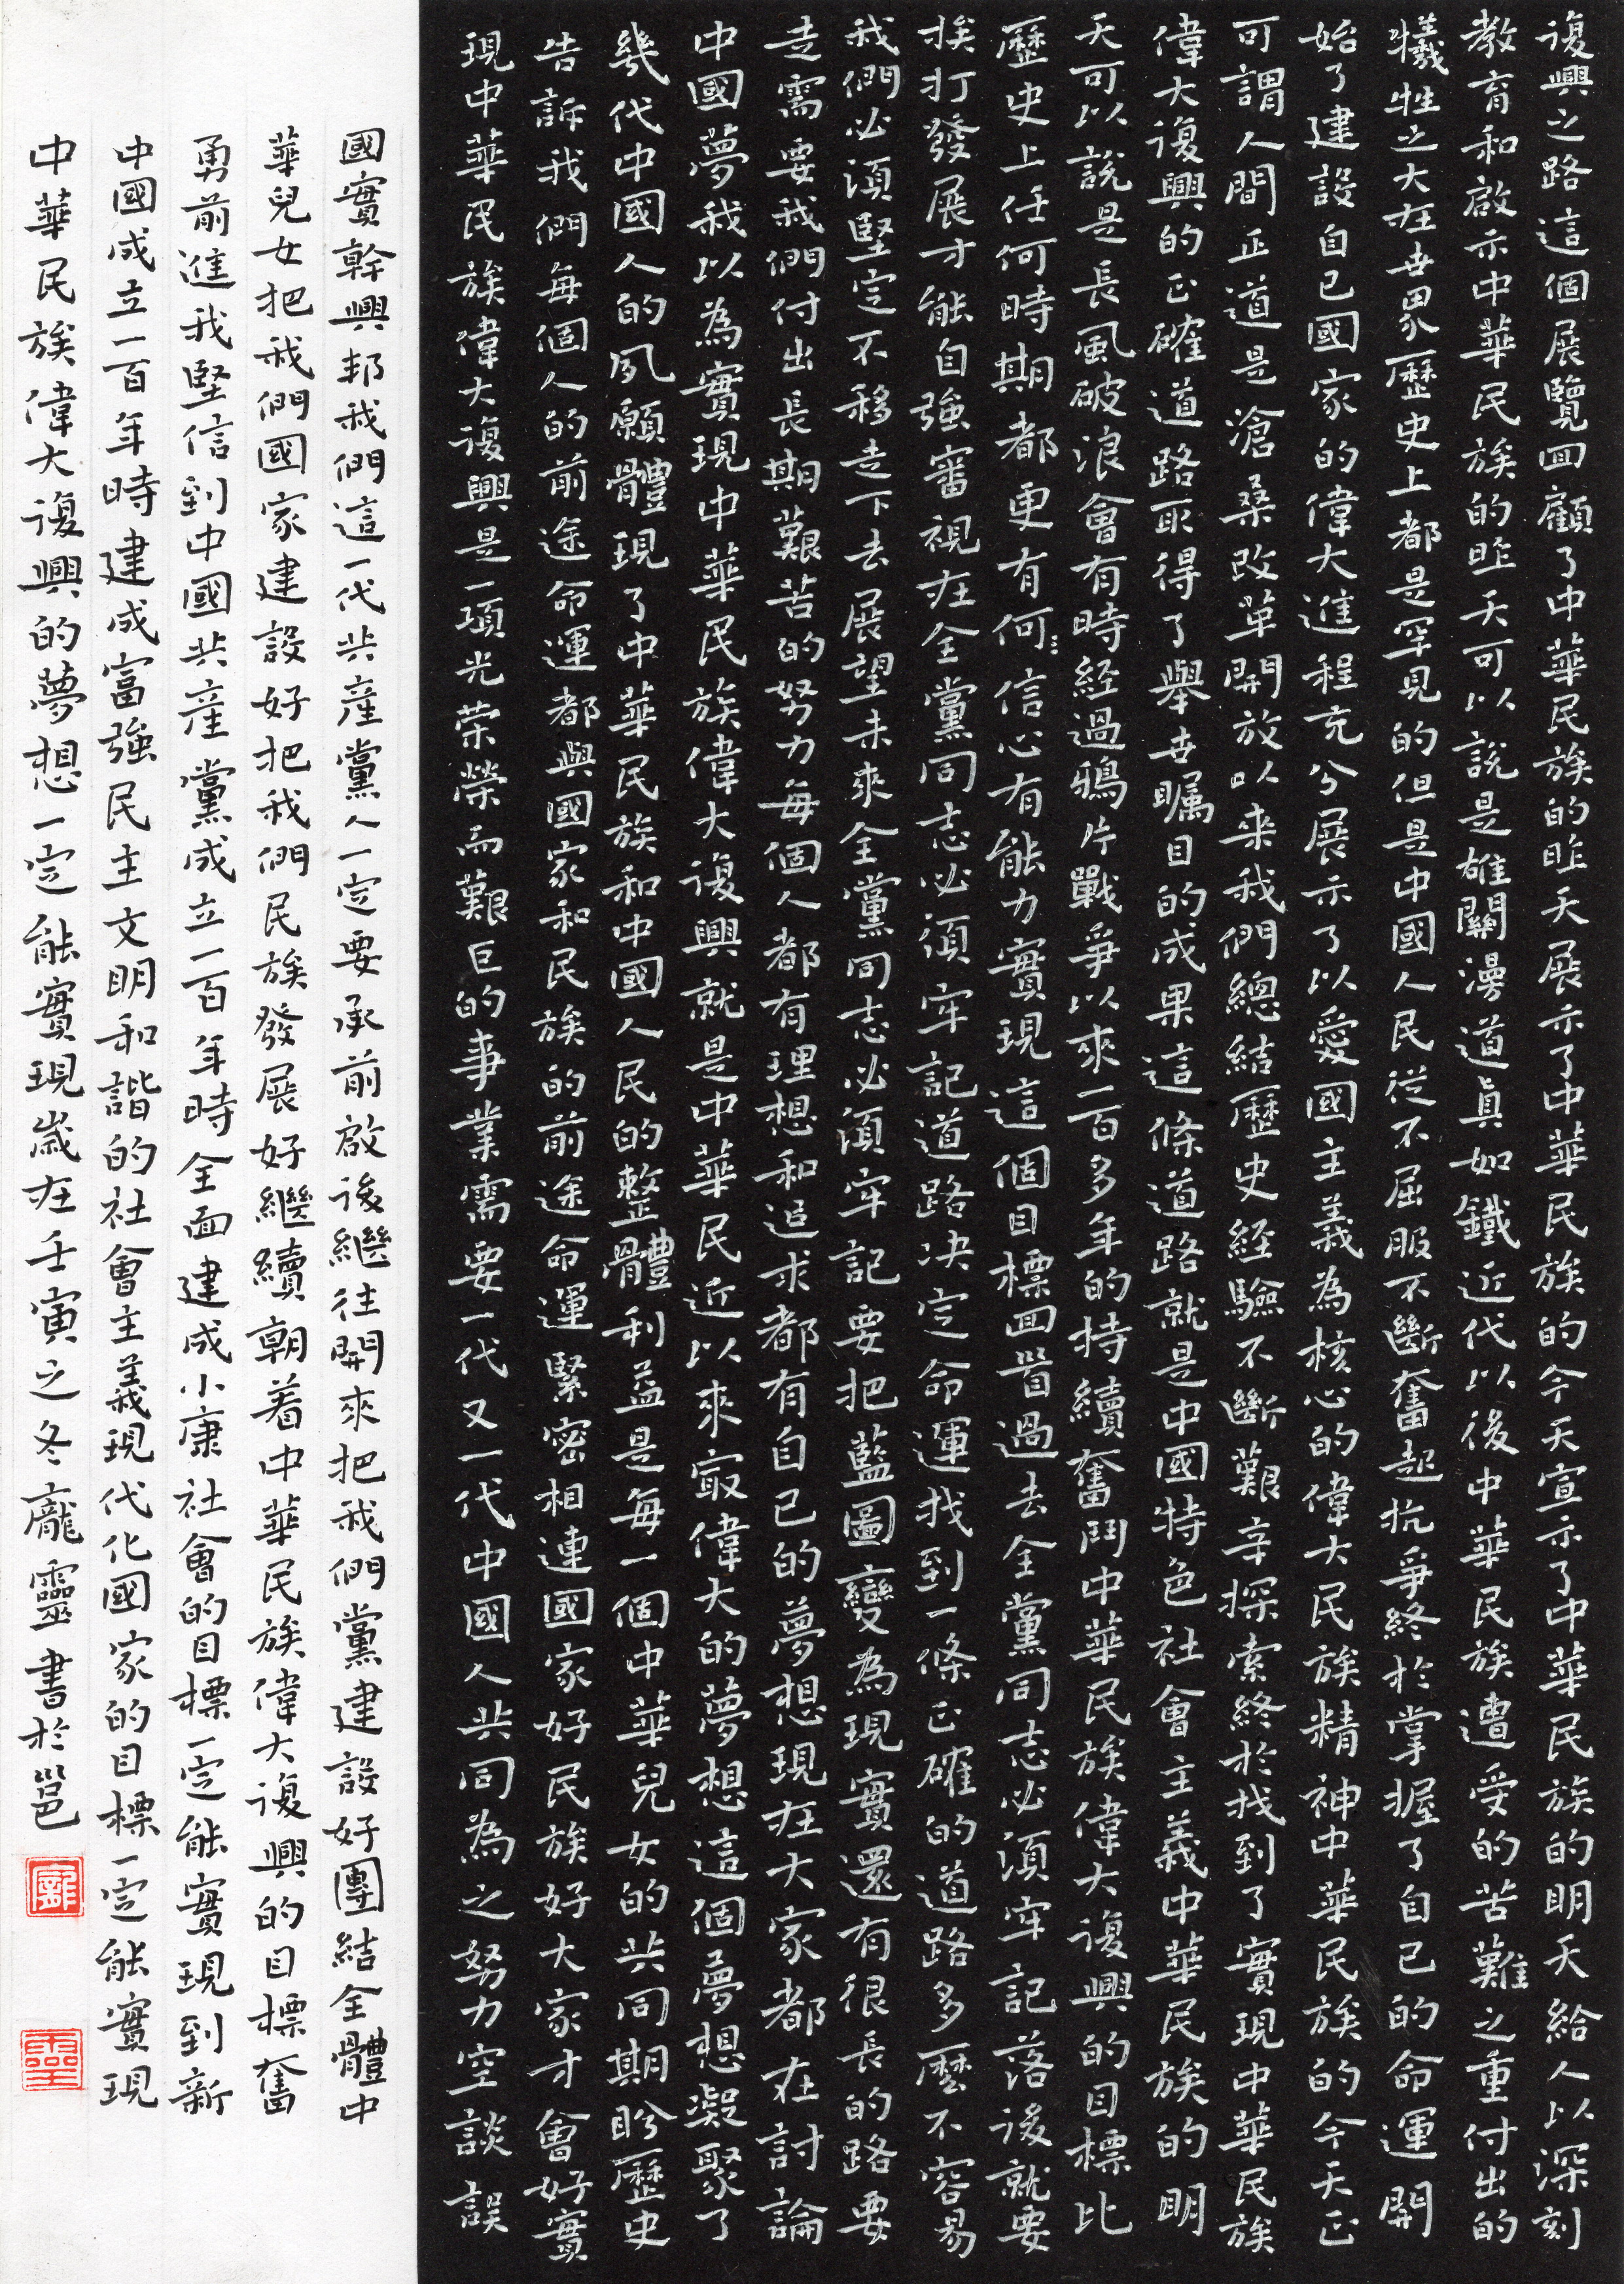 復興之路這個展覽回顧了中華民族的昨天展示了中華民族的今天宣示了中華民族的明天給人以深刻
教育和啟示中華民族的昨天可以說是雄關漫道真如鐵近代以後中華民族遭受的苦難之重付出的
犧牲之大在世界歷史上都是罕見的但是中國人民從不屈服不斷奮起抗爭終於掌握了自己的命運開
始了建設自己國家的偉大進程充分展示了以愛國主義為核心的偉大民族精神中華民族的今天正
可謂人間正道是滄桑改革開放以来我們總結歷史經驗不斷艱辛探索終於找到了實現中華民族
偉大復興的正確道路取得了舉世矚目的成果這條道路就是中國特色社會主義中華民族的明
天可以說是長風破浪會有時経過鴉片戰爭以來一百多年的持續奮鬥中華民族偉大復興的目標比
歷史上任何時期都更有何信心有能力實現這個目標回首過去全黨同志必須牢記落後就要
挨打發展才能自強審視在全黨同志必須牢記道路决定命運找到一條正確的道路多麼不容易
我們必須堅定不移走下去展望未來全黨同志必須牢記要把藍圖變為現實還有很長的路要
走需要我們付出長期艱苦的努力每個人都有理想和追求都有自己的夢想現在大家都在討論
中國夢我以為實現中華民族偉大復興就是中華民近以來最偉大的夢想這個夢想凝聚了
幾代中國人的夙願體現了中華民族和中國人民的整體利益是每一個中華兒女的共同期盼歷史
告訴我們每個人的前途命運都與國家和民族的前途命運緊密相連國家好民族好大家才會好實
現中華民族偉大復興是一項光荣榮而艱巨的事業需要一代又一代中國人共同為之努力空談誤
國實幹興邦我們這一代共產黨人一定要承前啟後繼往開來把我們黨建設好團結全體中
華兒女把我們國家建設好把我們民族發展好繼續朝着中華民族偉大復興的目標奮
勇前進我堅信到中國共產黨成立一百年時全面建成小康社會的目標一定能實現到新
中國成立一百年時建成富強民主文明和諧的社會主義現代化國家的目標一定能實現
中華民族偉大復興的夢想一定能實現歲在壬寅之冬龐靈書於邕